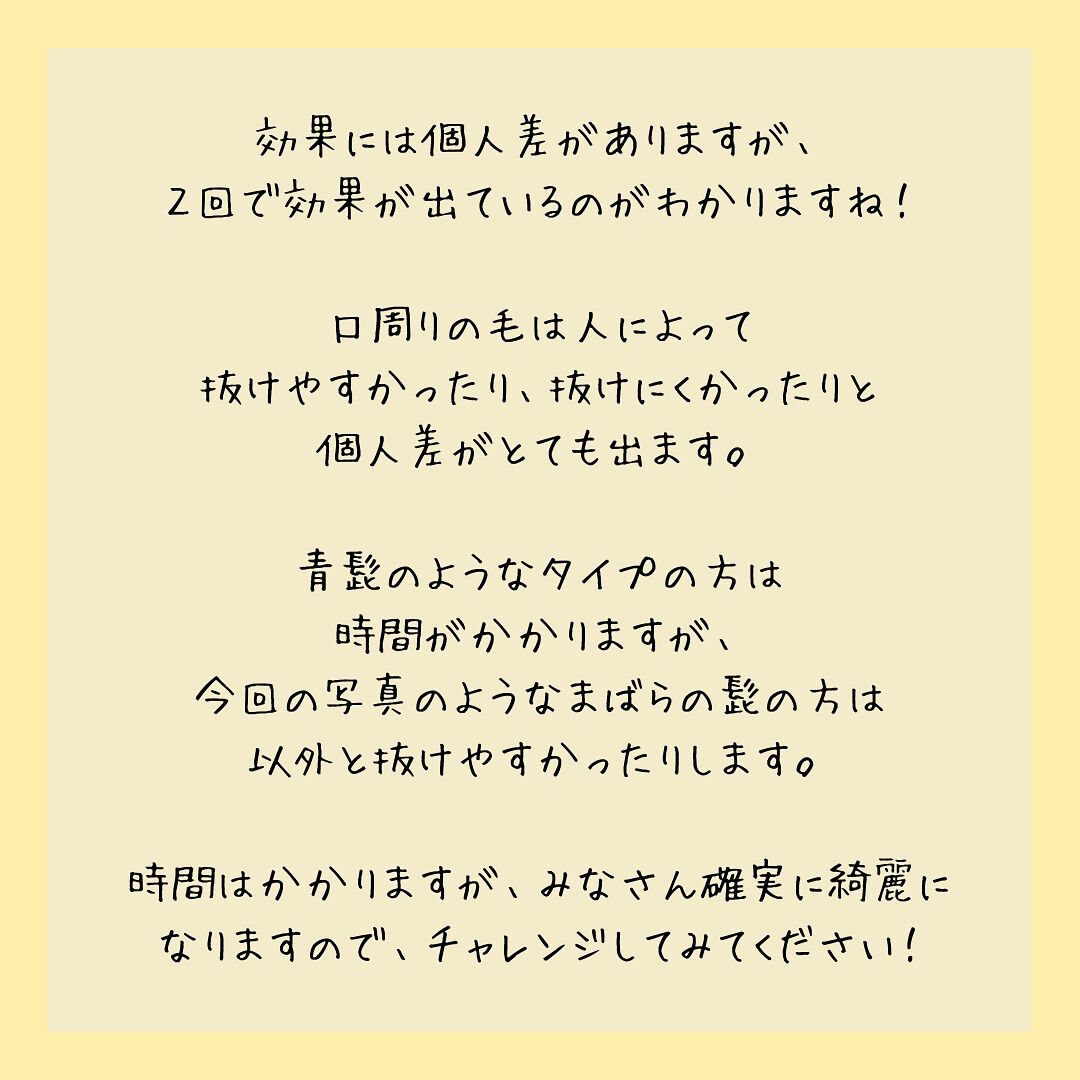 効果には個人差がありますが、
2回で効果が出ているのがわかりますね!
口周りの毛は人によって
抜けやすかったり、抜けにくかったりと
個人差がとても出ます。
青髭のようなタイプの方は
時間がかかりますが、
今回の写真のようなまばらの髭の方は
以外と抜けやすかったりします。
時間はかかりますが、みなさん確実に綺麗に
なりますので、チャレンジしてみてください!